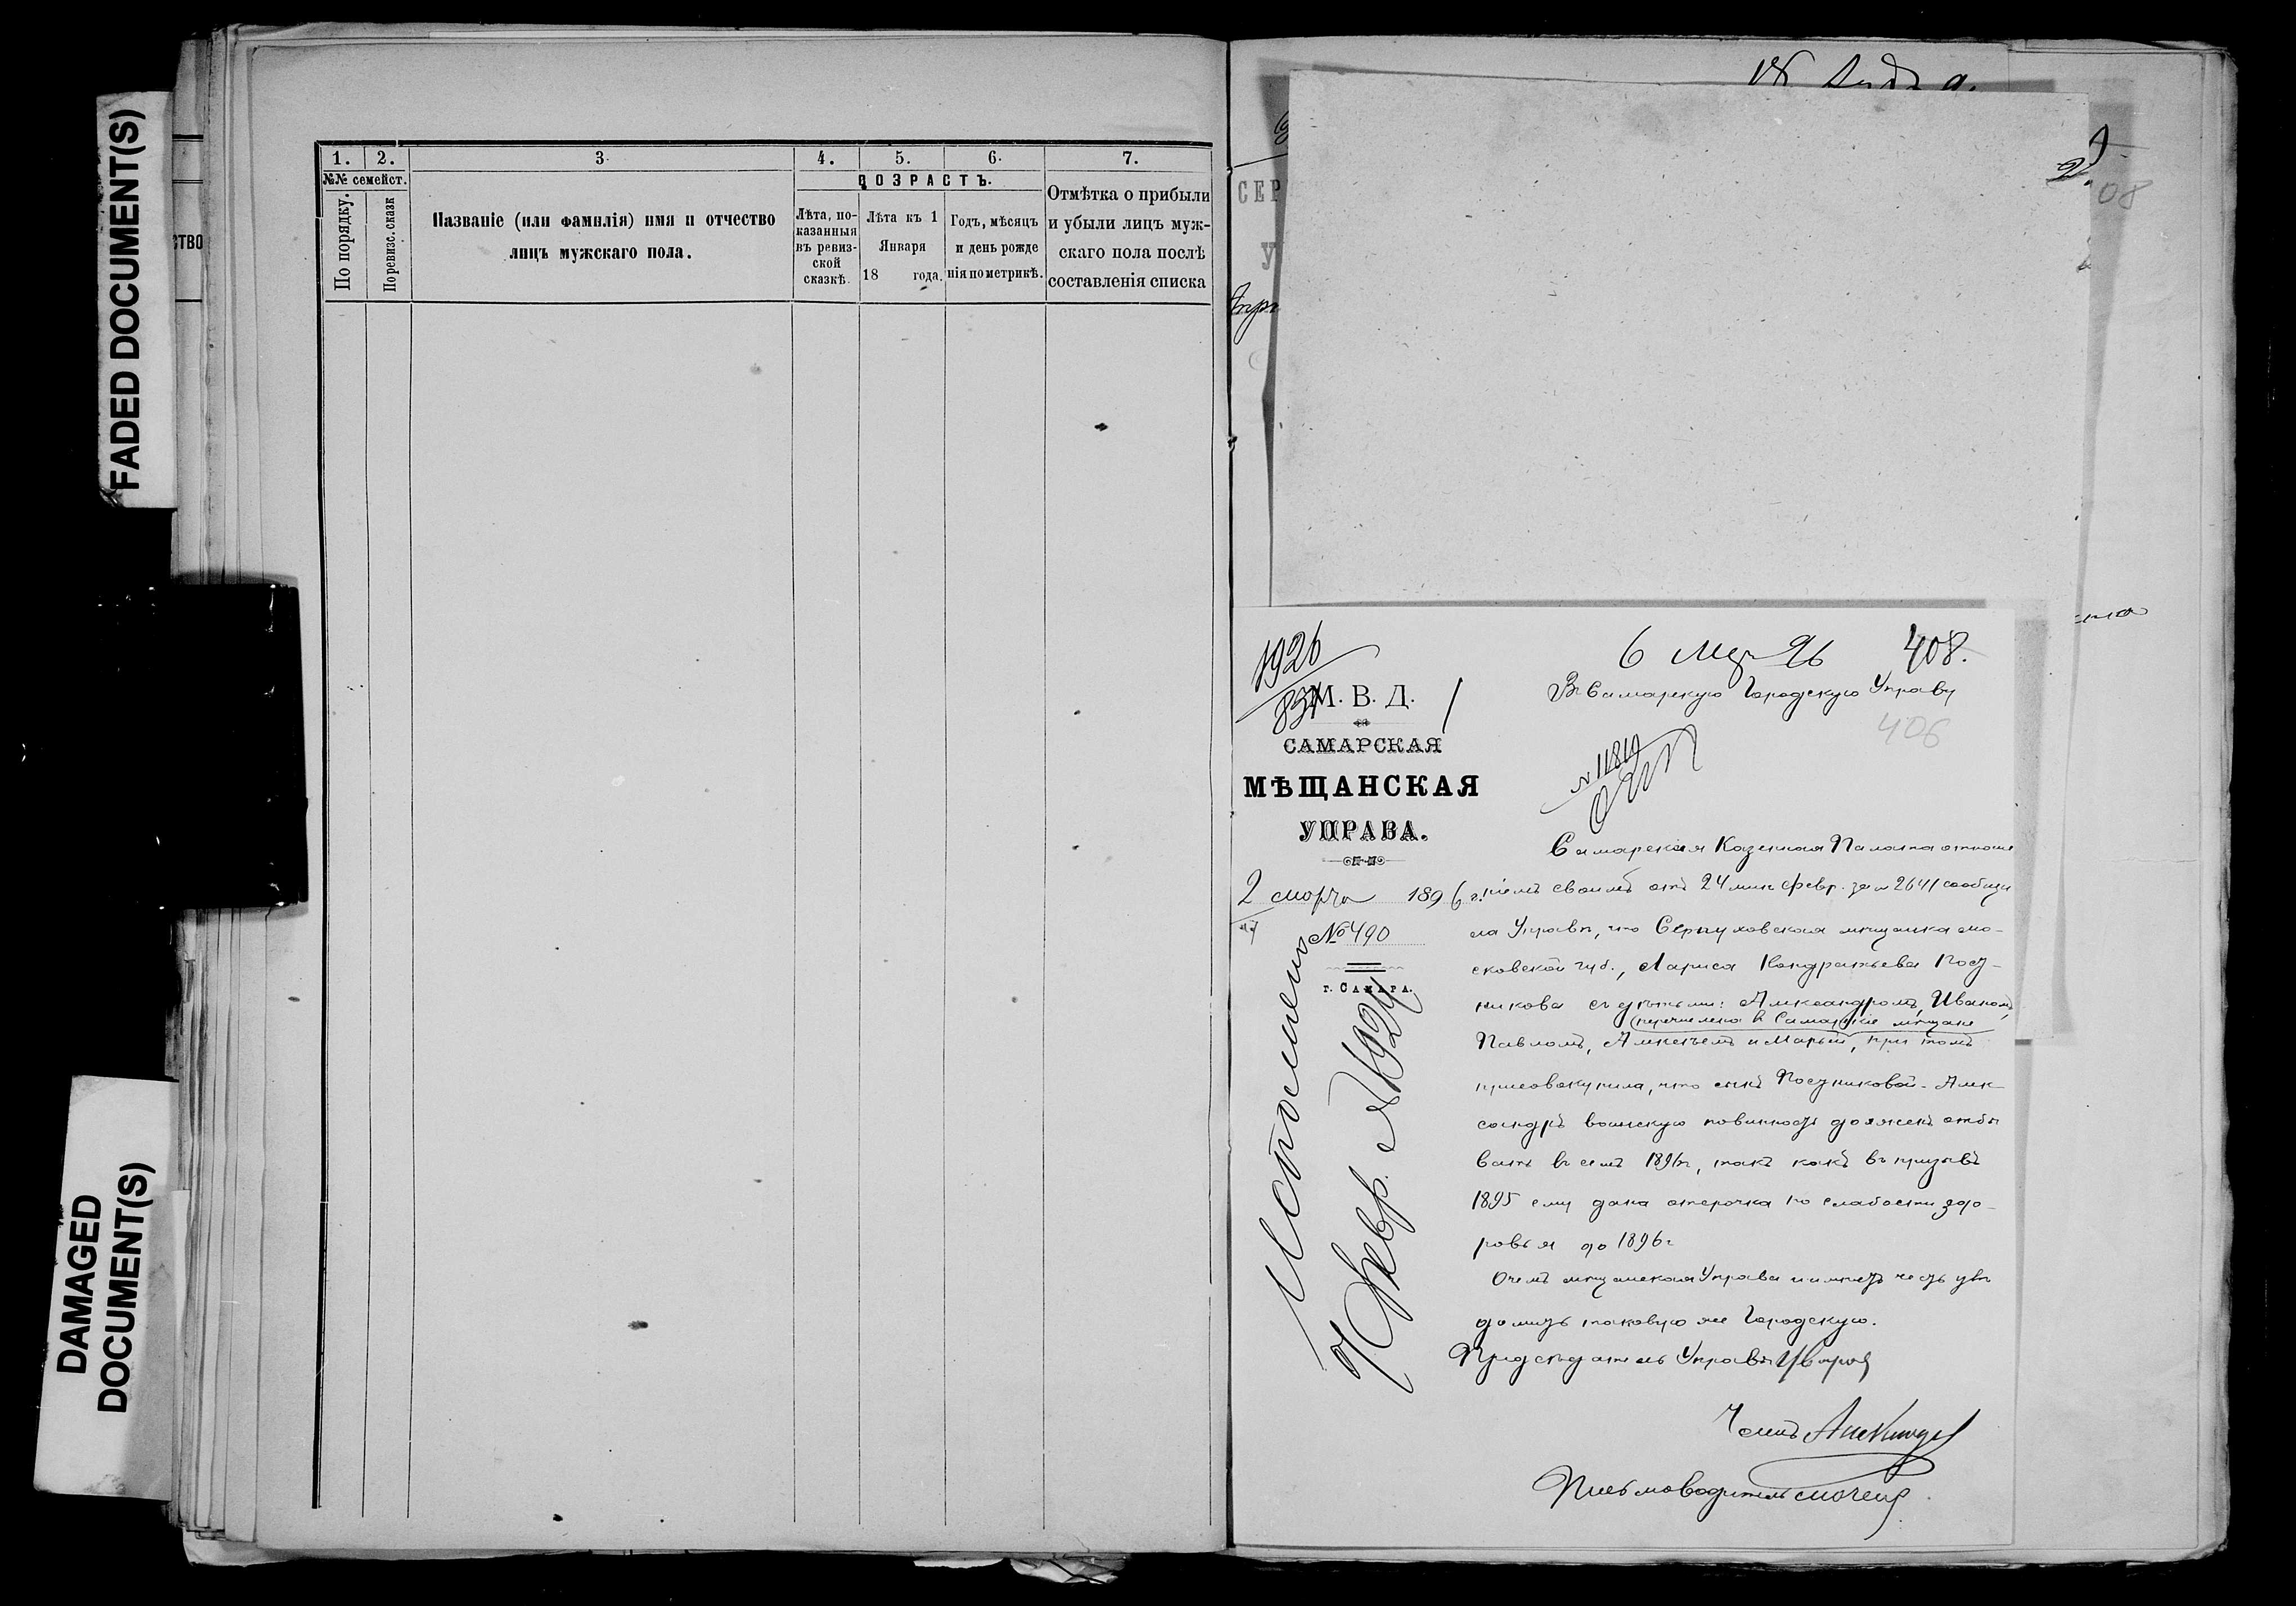 FADED DOCUMENT(S)
DAMAGED
DOCUMENT(S)
СТВО
1. 2. 3. 4. 5. 6. 7.
№№ семейст.
По порядку.
По ревизс. сказк
Названіе (или фамилія) имя и отчество
лицъ мужскаго пола.
ВОЗРАСТЪ.
Лѣта, по-
казанныя
въ ревиз-
ской
сказкѣ.
Лѣта къ 1
Января
18 года.
Годъ, мѣсяцъ
и день рожде
нія по метрикѣ.
Отмѣтка о прибыли
и убыли лицъ муж-
скаго пола послѣ
составленія списка
СЕР
У
08
1926
6 Мар 96 408.
М. В. Д.
Въ Самарскую Городскую Управу
406
САМАРСКАЯ
МѢЩАНСКАЯ
УПРАВА.
2 марта 1896 г.
№ 490
г. САМАРА.
Самарская Казенная Палата отноше
ніемъ своимъ отъ 24 мин. февр. за № 2641 сообщи
ла Управѣ, что Серпуховская мѣщанка мо-
сковской губ., Лариса Кондратьева Посу-
никова съ дѣтьми: Александромъ, Иваномъ,
перечислена в Самарскіе мѣщане
Павломъ, Алексѣемъ и Марьей, при томъ
присовокупила, что сынъ Посуниковой - Алек-
сандръ воинскую повинность долженъ отбы
вать въ семъ 1896 г., такъ какъ въ призывъ
1895 ему дана отсрочка по слабости здо-
ровья до 1896 г
О чемъ мѣщанская Управа и имѣетъ честь увѣ
домить таковую же Городскую.
Предсѣдатель Управы
Членъ
Письмоводитель